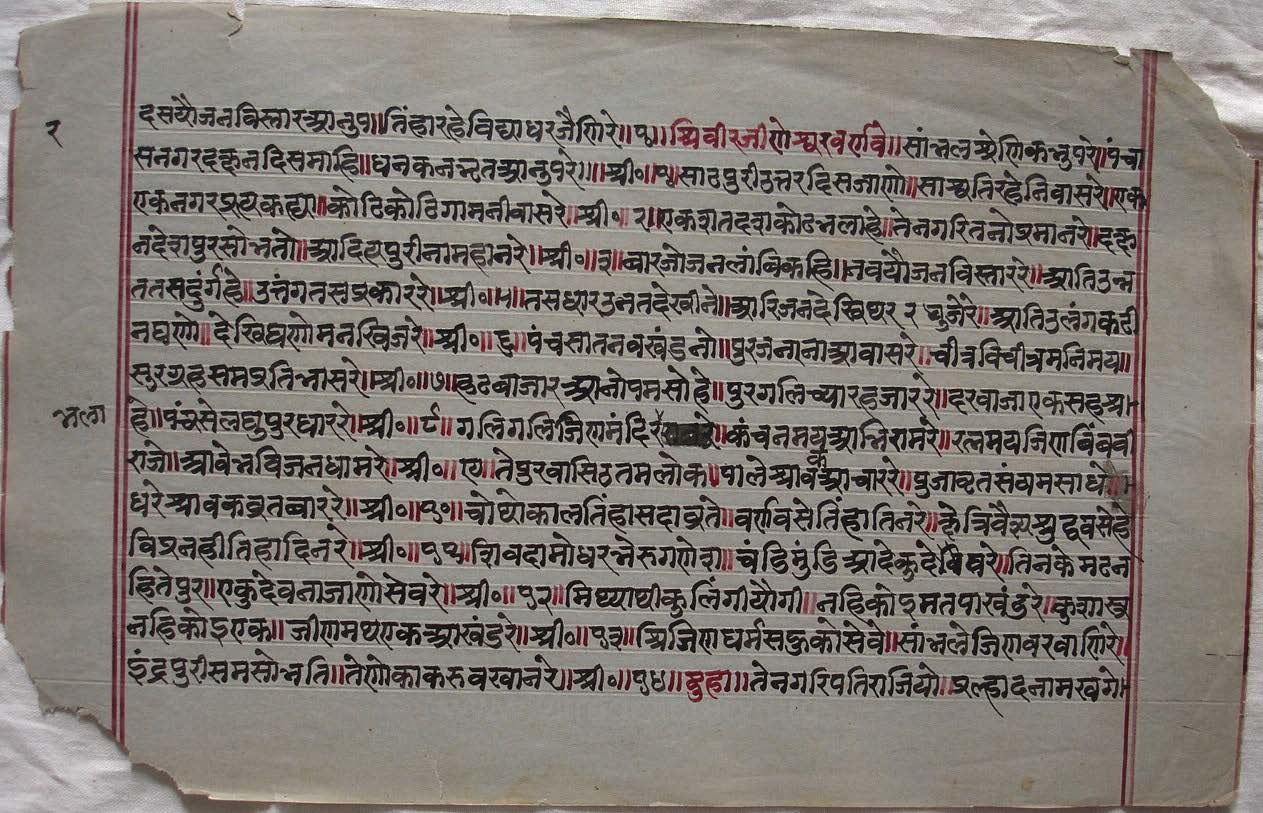 २
दसयौजनविस्तारआनुप॥तिंहारहेविद्याधरजैणिरे॥१॥श्रिवीरजीणेश्वरवर्णवि॥सांभलश्रेणिकभुपरे॥पंचा
सनगरदक्षनदिसमाहि॥धनकनभृतआनुपरे॥॥श्री०॥१॥साठपुरीउत्तरदिसजाणो॥साश्वतिरहेनिवासरे॥एक
एकनगरप्रत्यकह्या॥कोठिकोठिगामनीवासरे॥श्री०॥२॥एकशतदशकोठभलाहे॥तेनगरितनोप्रमानरे॥दक्ष
नदेशपुरसोभतो॥आदित्यपुरीनाममहानरे॥श्री०॥३॥बारजोजनलांबिकहि॥नवयौजनविस्ताररे॥आतिउन्न
ततसदुंर्गहे॥उत्तंगतसप्रकाररे॥श्री०॥५॥तसधारउनतदेखीने॥आरिजनदेखिथर२धुजेरे॥आतिउलंगकठी
नघणो॥देखिघणोमनखिजरे॥श्री०॥६॥पंचसातनवखंडनो॥पुरजनानाआवासरे॥चीत्रविचीत्रमनिमय॥
सुरग्रहसमप्रतिभासरे॥श्री०॥७॥हठबाजारआनोपमसोहे॥पुरगलिच्यारहजाररे॥दरवाजाएकसहश्र
भला
हे॥पंचसेलघुपुरधाररे॥श्री०॥८॥गलिगलिजिणमंदिर रे॥कंचनमयआभिरामरे॥रत्नमयजिणबिंबवी
राजे॥आवेभविजनधामरे॥श्री०॥ए॥तेपुरवासिठतमलोक॥पालेश्रावकआचाररे॥पुजावृतसंयमसाधे॥
धरेश्रावकव्रतबाररे॥श्री०॥१०॥चोथोकालतिंहासदाव्रते॥वर्णविसेतिंहातिनरे॥क्षेत्रिवैश्यश्रुद्रवसेहे
विप्रनहीतिहादिनरे॥श्री०॥११॥शिवदामोधरभेरुगणेश॥चंडिमुंडिआदेकुदेविघरे॥तिनकेमठन
हितेपुर॥एकुंदेवनाजाणोसेवरे॥श्री०॥१२॥मिथ्याथीकुलिंगीयौगी॥नहिकोइमतपाखंडरे॥कुशास्त्र
नहिकोइएक॥जीणमथएकआखंडरे॥श्री०॥१३॥श्रिजिणधर्मसहुकोसेवे॥सांभलेजिणवरवाणिरे॥
इंद्रपुरीसमसोभति॥तेणोकाकरुवखानरे॥श्री०॥१४॥दुहा॥तेनगरिपतिराजियो॥प्रल्हादनामखगे